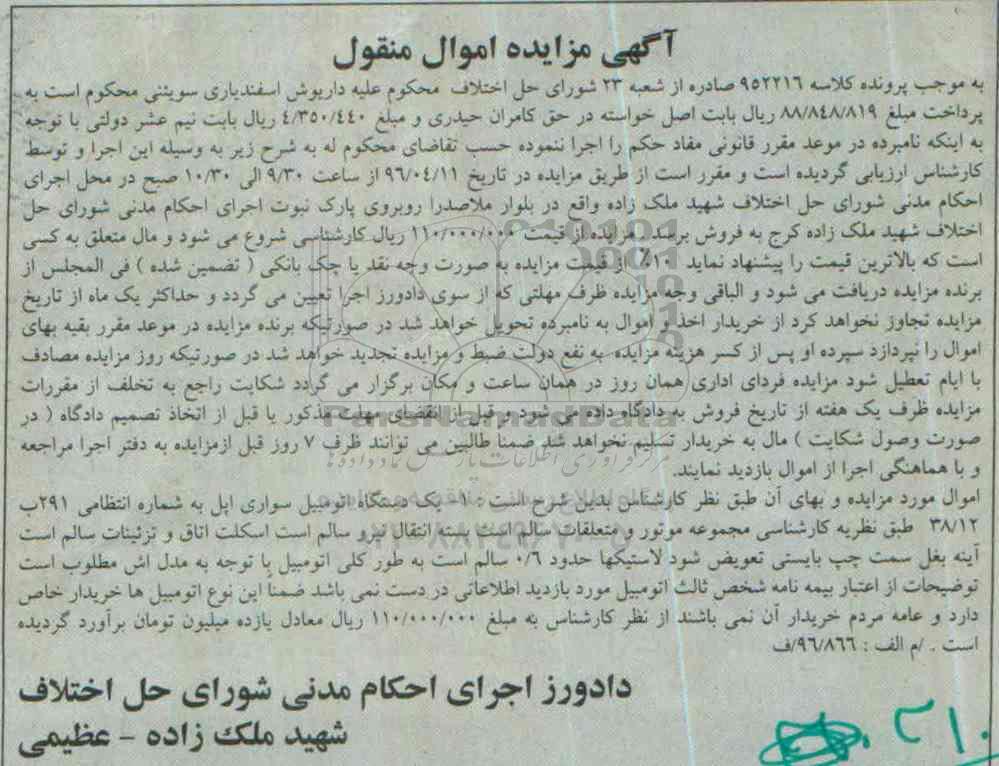 آگهی مزایده اموال منقول
به موجب پرونده کلاسه ۹۵۲۲۱۶ صادره از شعبه ۲۳ شورای حل اختلاف محکوم علیه داریوش اسفندیاری سویشی محکوم است به
پرداخت مبلغ ۸۸/۸۴۸/۸۱۹ ریال بابت اصل خواسته در حق کامران حیدری و مبلغ ۴/۳۵۰/۴۴۰ ریال بابت نیم عشر دولتی با توجه
به اینکه نامبرده در موعد مقرر قانونی مفاد حکم را اجرا ننموده حسب تقاضای محکوم له به شرح زیر به وسیله این اجرا و توسط
کارشناس ارزیابی گردیده است و مقرر است از طریق مزایده در تاریخ ۹۶/۰۴/۱۱ از ساعت ۹/۳۰ الی ۱۰/۳۰ صبح در محل اجرای
احکام مدنی شورای حل اختلاف شهید ملک زاده واقع در بلوار ملاصدرا روبروی پارک نبوت اجرای احکام مدنی شورای حل
اختلاف شهید ملک زاده کرج به فروش برسد. مزایده از قیمت ۱۱۰/۰۰۰/۰۰۰ ریال کارشناسی شروع می شود و مال متعلق به کسی
است که بالاترین قیمت را پیشنهاد نماید ۱۰٪ از قیمت مزایده به صورت وجه نقد یا چک بانکی ( تضمین شده ) فی المجلس از
برنده مزایده دریافت می شود و الباقی وجه مزایده ظرف مهلتی که از سوی دادورز اجرا تعیین می گردد و حداکثر یک ماه از تاریخ
مزایده تجاوز نخواهد کرد از خریدار اخذ و اموال به نامبرده تحویل خواهد شد در صورتیکه برنده مزایده در موعد مقرر بقیه بهای
اموال را نپردازد سپرده او پس از کسر هزینه مزایده به نفع دولت ضبط و مزایده تجدید خواهد شد در صورتیکه روز مزایده مصادف
با ایام تعطیل شود مزایده فردای اداری همان روز در همان ساعت و مکان برگزار می گردد شکایت راجع به تخلف از مقررات
مزایده ظرف یک هفته از تاریخ فروش به دادگاه داده می شود و قبل از انقضای مهلت مذکور یا قبل از اتخاذ تصمیم دادگاه ( در
صورت وصول شکایت ) مال به خریدار تسلیم نخواهد شد ضمنا طالبین می توانند ظرف ۷ روز قبل ازمزایده به دفتر اجرا مراجعه
و با هماهنگی اجرا از اموال بازدید نمایند.
اموال مورد مزایده و بهای آن طبق نظر کارشناس بدین شرح است : ۱- یک دستگاه اتومبیل سواری اپل به شماره انتظامی ۲۹۱ب
۳۸/۱۲ طبق نظریه کارشناسی مجموعه موتور و متعلقات سالم است بسته انتقال نیرو سالم است اسکلت اتاق و تزئینات سالم است
آینه بغل سمت چپ بایستی تعویض شود لاستیکها حدود ۰/۶ سالم است به طور کلی اتومبیل با توجه به مدل اش مطلوب است
توضیحات از اعتبار بیمه نامه شخص ثالث اتومبیل مورد بازدید اطلاعاتی در دست نمی باشد ضمنا این نوع اتومبیل ها خریدار خاص
دارد و عامه مردم خریدار آن نمی باشند از نظر کارشناس به مبلغ ۱۱۰/۰۰۰/۰۰۰ ریال معادل یازده میلیون تومان برآورد گردیده
است . /م الف : ۹۶/۸۶۶/ف
دادورز اجرای احکام مدنی شورای حل اختلاف
شهید ملک زاده - عظیمی
ParsNamadData